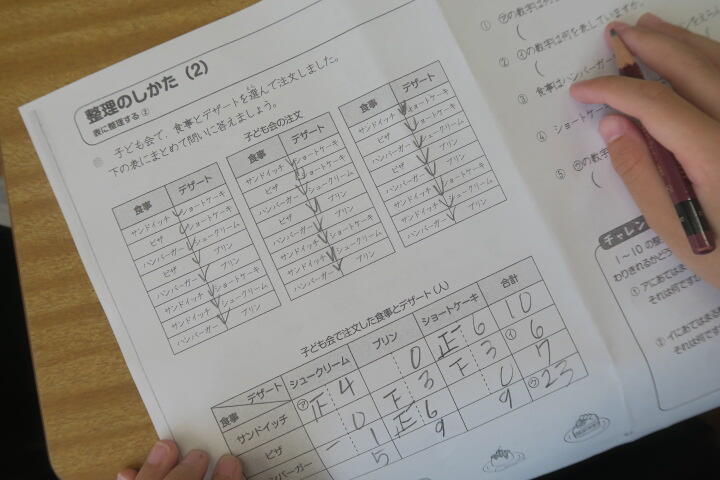 整理のしかた (2)
表に整理する②
子ども会で、食事とデザートを選んで注文しました。
下の表にまとめて問いに答えましょう。
子ども会の注文
食事 デザート
サンドイッチ ショートケーキ
ピザ ショートケーキ
ハンバーガー シュークリーム
ピザ プリン
ハンバーガー プリン
サンドイッチ ショートケーキ
サンドイッチ シュークリーム
ハンバーガー プリン
食事 デザート
サンドイッチ ショートケーキ
ピザ ショートケーキ
ハンバーガー シュークリーム
ピザ プリン
ハンバーガー プリン
サンドイッチ ショートケーキ
サンドイッチ シュークリーム
ハンバーガー プリン
食事 デザート
サンドイッチ ショートケーキ
ピザ ショートケーキ
ハンバーガー シュークリーム
ピザ プリン
ハンバーガー プリン
サンドイッチ ショートケーキ
サンドイッチ シュークリーム
ハンバーガー プリン
子ども会で注文した食事とデザート(人)
デザート 食事 シュークリーム プリン ショートケーキ 合計
サンドイッチ ㋐ 4 0 正 6 10
ピザ 0 3 3 ㋑ 6
ハンバーガー 一 1 正 6 0 7
5 9 9 ㋒ 23
① ㋐の数字は何
② ㋑の数字は何を表していますか。
③ 食事はハンバーガー
④ ショートケ
⑤ ㋒の数字
チャレン
1~10の整
わりきれるかどう
① アにあてはま
それは何です
② イにあてはまる
それは何で